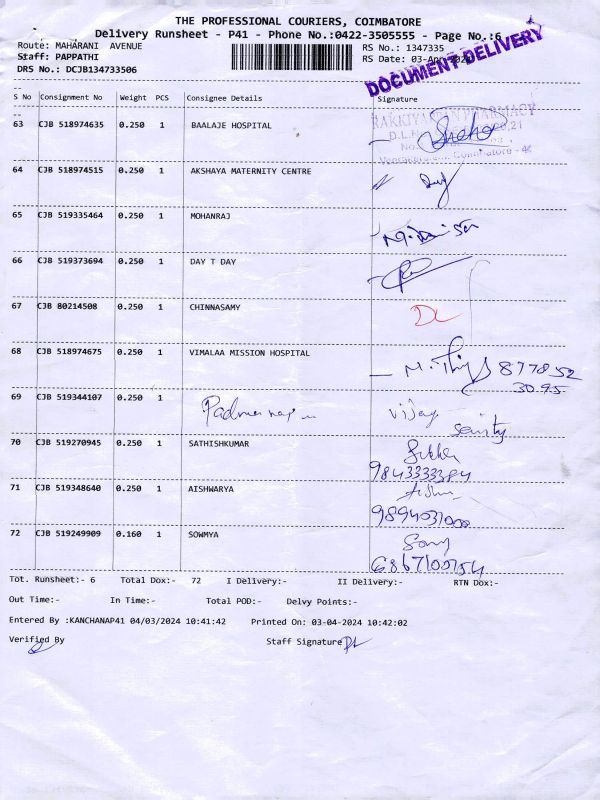 THE PROFESSIONAL COURIERS, COIMBATORE
Delivery Runsheet - P41 - Phone No.:0422-3505555 - Page No.:6
Route: MAHARANI AVENUE
RS No.: 1347335
Staff: PAPPATHI
RS Date: 03-Apr-2024
DRS No.: DCJB134733506
DOCUMENT DELIVERY
S No Consignment No Weight PCS Consignee Details Signature
63 CJB 518974635 0.250 1 BAALAJE HOSPITAL
PHARMACY
Coimbatore - 4
64 CJB 518974515 0.250 1 AKSHAYA MATERNITY CENTRE
65 CJB 519335464 0.250 1 MOHANRAJ
66 CJB 519373694 0.250 1 DAY T DAY
67 CJB 80214508 0.250 1 CHINNASAMY DL
68 CJB 518974675 0.250 1 VIMALAA MISSION HOSPITAL
877852
30.95
69 CJB 519344107 0.250 1 Vijay
70 CJB 519270945 0.250 1 SATHISHKUMAR
9843333384
71 CJB 519348640 0.250 1 AISHWARYA
72 CJB 519249909 0.160 1 SOWMYA
Tot. Runsheet:- 6 Total Dox:- 72 I Delivery:- II Delivery:- RTN Dox:-
Out Time:- In Time:- Total POD:- Delvy Points:-
Entered By :KANCHANAP41 04/03/2024 10:41:42 Printed On: 03-04-2024 10:42:02
Verified By Staff Signature